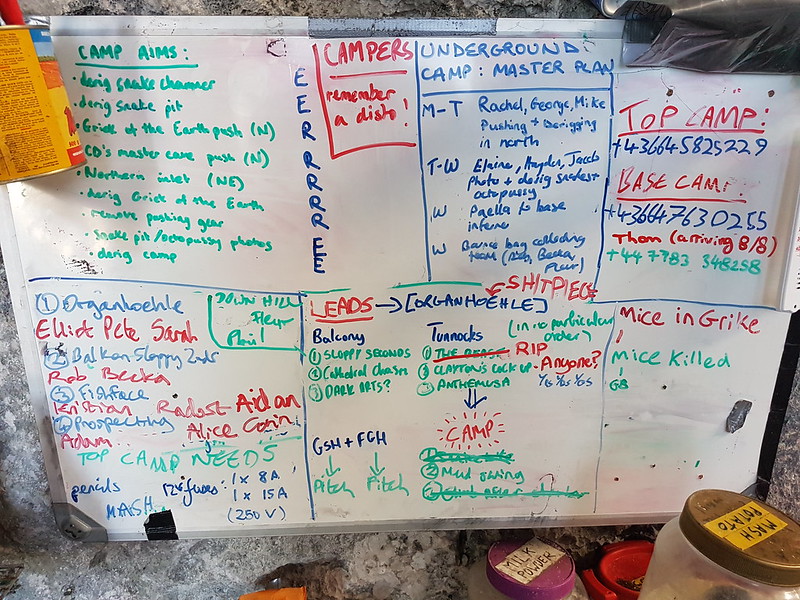 CAMP AIMS:
· derig snake charmer
· derig snake pit
· Grike of the Earth push (N)
· CD's master cave push (N)
· Northern inlet (NE)
· derig Grike of the Earth
· remove pushing gear
· snake pit/octopussy photos
· derig camp
E
E
R
R
R
R
E
E
CAMPERS
remember
a disto!
UNDERGROUND
CAMP: MASTER PLAN
M-T Rachel, George, Mike
Pushing + Derigging
in north
T-W Elaine, Hayden, Jacob
Photo + derig
octopussy
W Paella to base
W Bounce bag collecting
team
TOP CAMP:
+436645825229
BASE CAMP:
+436647630255
Thom (arriving 8/8)
+44 7783 348258
① Organhoehle
Elliot Pete Sarah
② Balkon Sloppy 2nds
Rob Becka
③ Fishface
Kristian Radost Aidan
④ Prospecting Alice Corin
Adam
DOWN HILL
TOP CAMP NEEDS
pencils 12x fuses: 1 x 8A
1 x 15A
MASH (250 V)
LEADS → [ORGANHOEHLE]
SHITPIECE
Balcony
① SLOPPY SECONDS
② Cathedral Chasm
③ DARK ARTS?
Tunnocks (in no particular
order)
① THE BEAST RIP
② CLAYTON'S COCK UP - Anyone?
③ ANTHEMUSA
CAMP
② Mud swing
GSH + FGH
↓ ↓
Pitch Pitch
Mice in Grike
Mice Killed
GB
MILK
POWDER
MASH
POTATO